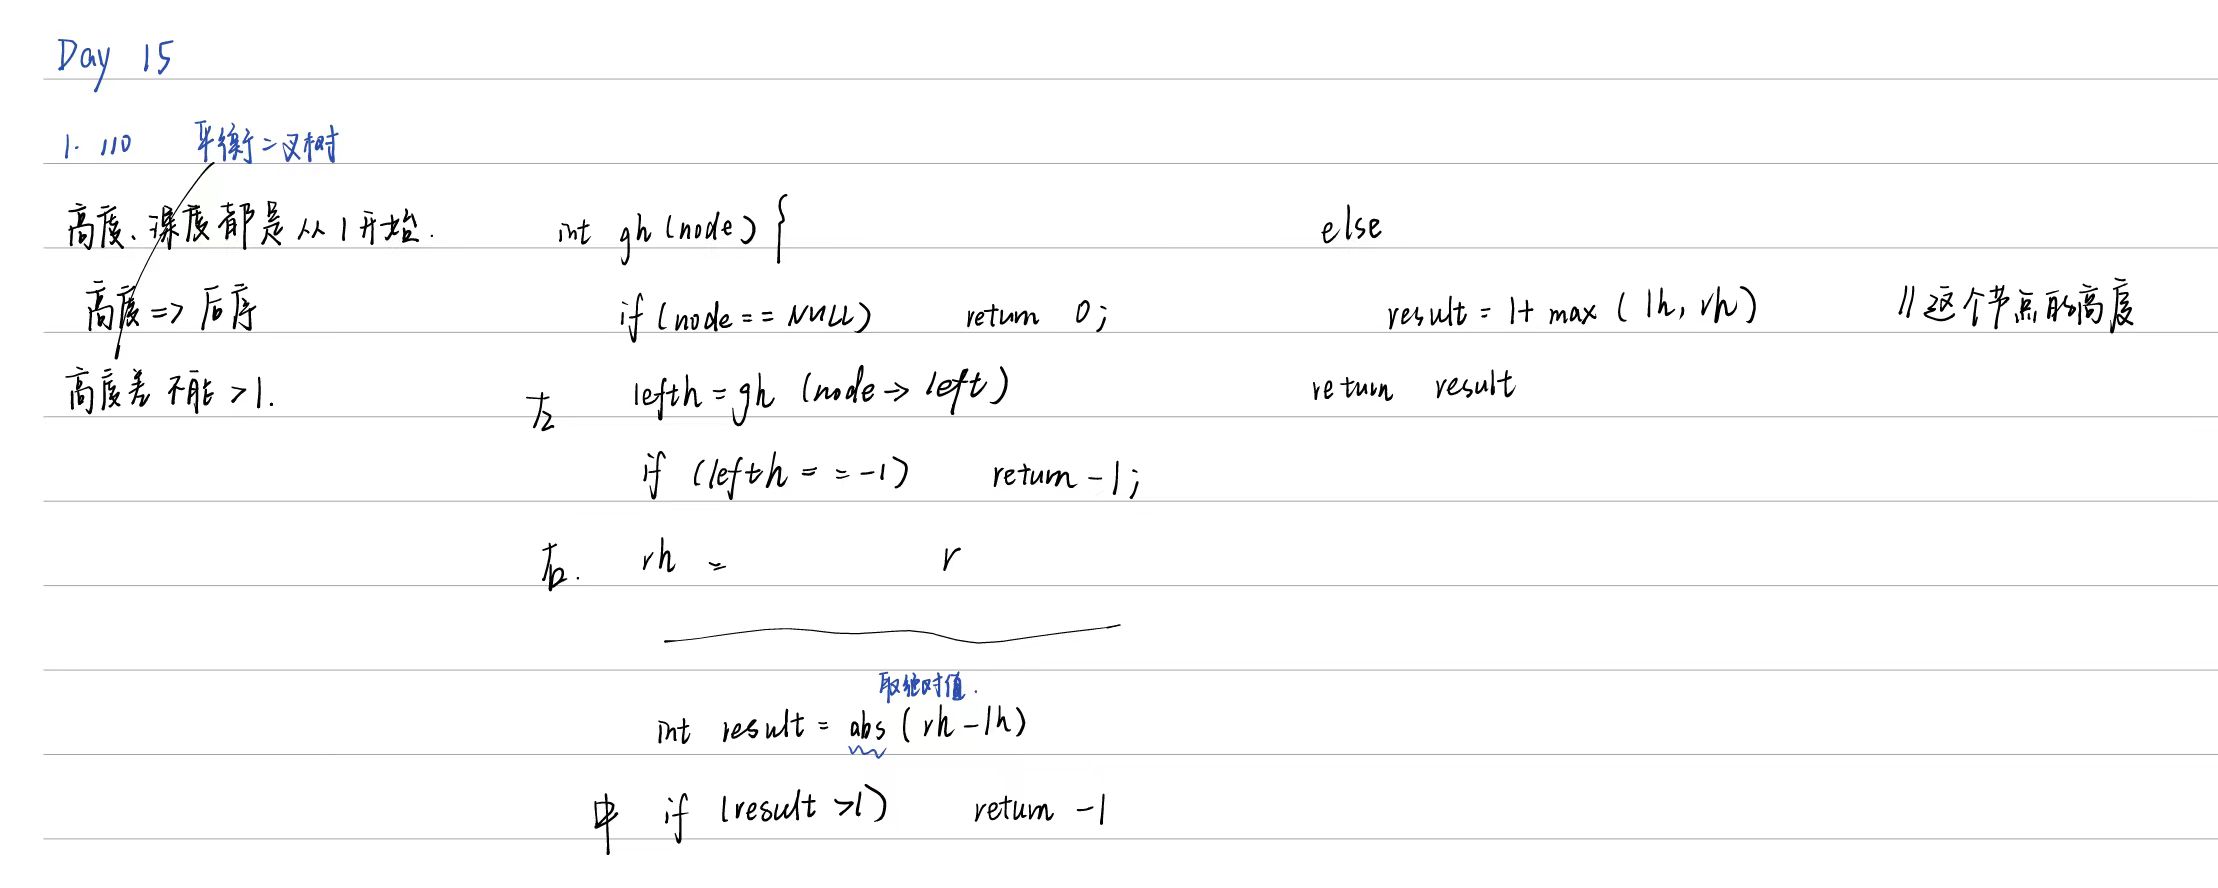 Day 15
1. 110 平衡二叉树
高度、深度都是从1开始.
高度 => 后序
高度差不能 >1.
int gh (node) {
if (node == NULL) return 0;
左 lefth = gh (node -> left)
if (lefth == -1) return -1;
右. rh = r
取绝对值.
int result = abs (rh - lh)
中 if (result >1) return -1
else
result = 1+ max (lh, rh) // 这个节点的高度
return result